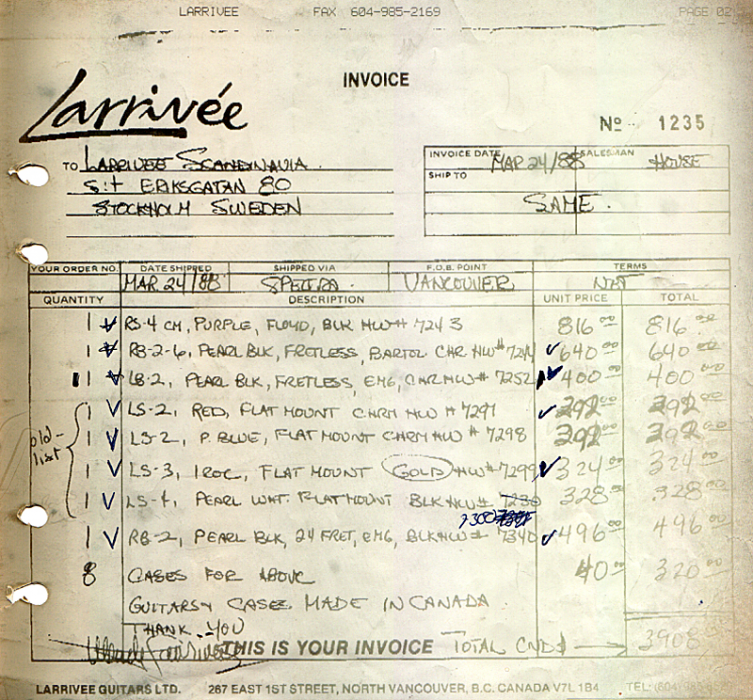 LARRIVEE FAX 604-985-2169 PAGE 02
INVOICE
Larrivée
Nº 1235
TO LARRIVEE SCANDINAVIA.
S:t ERIKSGATAN 80
STOCKHOLM SWEDEN
INVOICE DATE MAR 24/88 SALESMAN HOUSE
SHIP TO
SAME.
YOUR ORDER NO. DATE SHIPPED SHIPPED VIA F.O.B. POINT TERMS
MAR 24/88 VANCOUVER
QUANTITY DESCRIPTION UNIT PRICE TOTAL
1 RS-4 CM, PURPLE, FLOYD, BLK HW# 7243 816 00 816 00
1 RB-2-6, PEARL BLK, FRETLESS, BARTOL CHR HW# 640 00 640 00
1 LB-2, PEARL BLK, FRETLESS, EMG, CHR HW# 7252 400 00 400 00
1 LS-2, RED, FLAT MOUNT CHRM HW # 7297 292 00 292 00
old-list
1 LS-2, P. BLUE, FLAT MOUNT CHRM HW # 7298 292 00 292 00
1 LS-3, IROC, FLAT MOUNT GOLD HW# 7299 324 00 324 00
1 LS-4, PEARL WHT. FLAT MOUNT BLK HW# 328 00 328 00
7300
1 RB-2, PEARL BLK, 24 FRET, EMG, BLK HW# 7340 496 00 496 00
8 CASES FOR ABOVE 40 00 320 00
GUITARS & CASES MADE IN CANADA
THANK YOU
THIS IS YOUR INVOICE TOTAL CND$ 3908
LARRIVEE GUITARS LTD. 267 EAST 1ST STREET, NORTH VANCOUVER, B.C. CANADA V7L 1B4 TEL: (604)